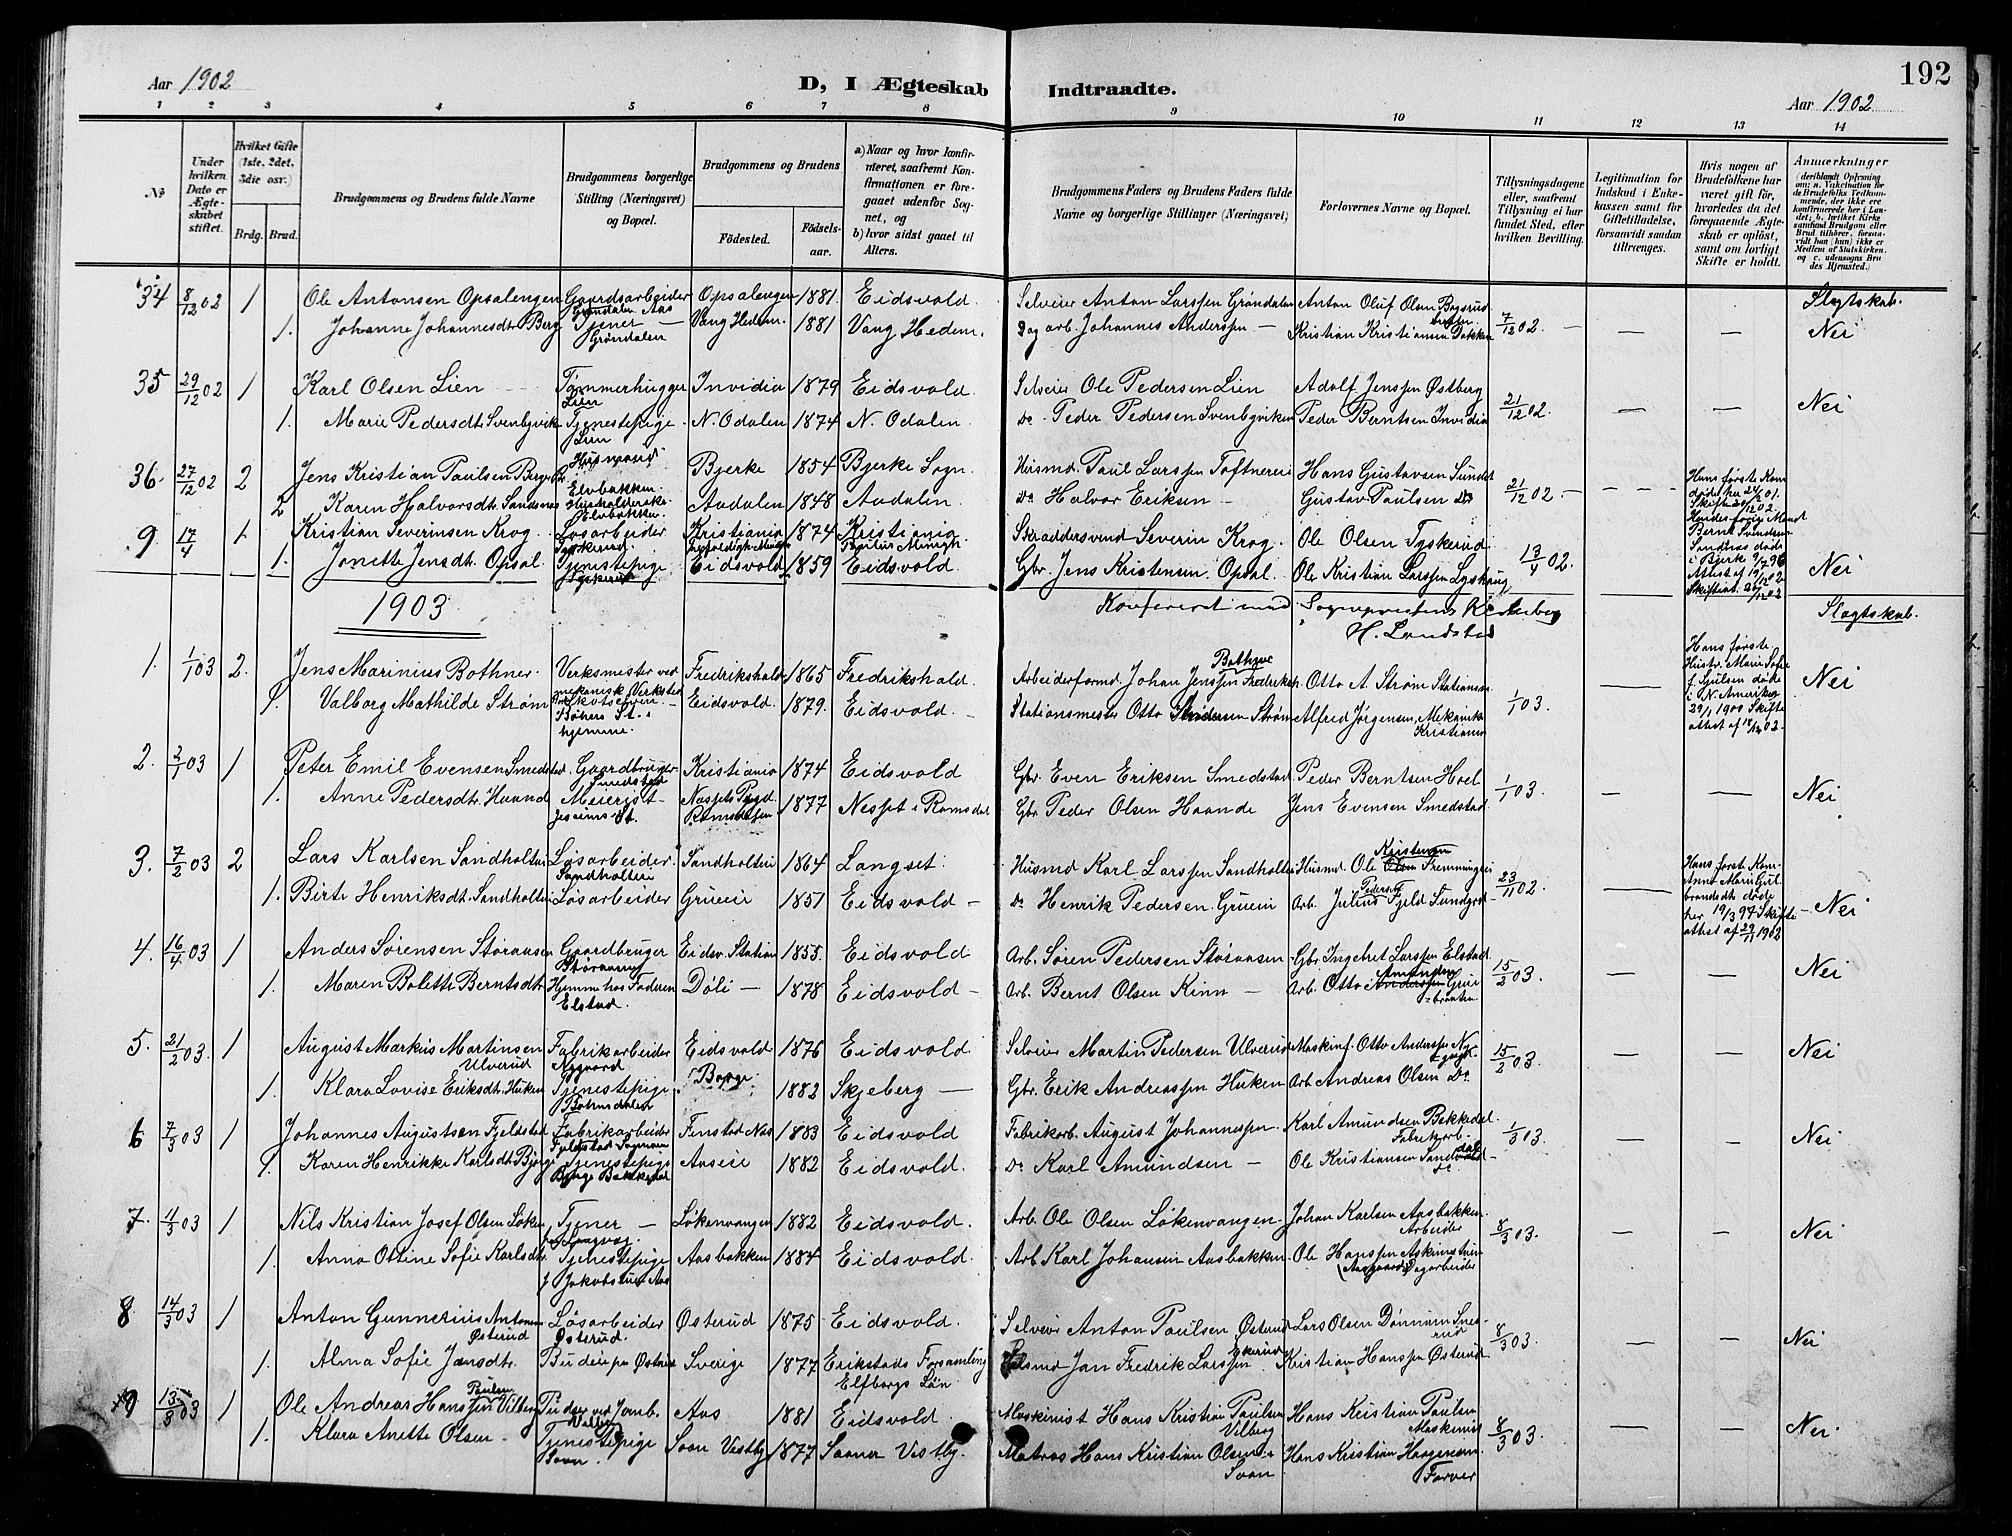 192
Aar 1902
D, I Ægteskab Indtraadte.
Aar 1902
1 2 3 4 5 6 7 8 9 10 11 12 13 14
No
Under hvilken Dato er Ægteskabet stiftet.
Hvilket Gifte (1ste, 2det, 3die osv.)
Brdg. Brud.
Brudgommens og Brudens fulde Navne
Brudgommens borgerlige Stilling (Næringsvei) og Bopæl.
Brudgommens og Brudens
Fødested.
Fødselsaar.
a) Naar og hvor konfirmeret, saafremt Konfirmationen er foregaaet udenfor Sognet, og
b) hvor sidst gaaet til Alters.
Brudgommens Faders og Brudens Faders fulde Navne og borgerlige Stillinger (Næringsvei)
Forlovernes Navne og Bopæl.
Tillysningsdagene eller, saafremt Tillysning ei har fundet Sted, efter hvilken Bevilling.
Legitimation for Indskud i Enkekassen samt for Giftetilladelse, forsaavidt saadan tiltrænges.
Hvis nogen af Brudefolkene har været gift før, hvorledes da det foregaaende Ægteskab er opløst, samt om lovligt Skifte er holdt.
Anmærkninger
34 8/12 02 1 Ole Antonsen Opsalengen Gaardsarbeider Grøndalen Aas Opsalengen 1881. Eidsvold. Selveier Anton Larssen Grøndalen Anton Oluf Olsen Bogsrud 7/12 02. Slagtskab.
1. Johanne Johannesdt. Berg Tjener Grøndalen Vang Hedem. 1881 Vang Hedem. Dagarb. Johannes Anderssen Kristian Kristiansen Bakken Nei
35 29/12 02 1 Karl Olsen Lien Tømmerhugger Lien Invidia 1879 Eidsvold. Selveier Ole Pedersen Lien Adolf Jenssen Østberg 21/12 02.
1. Marie Pedersdt. Svenbyvik Tjenestepige Lien N. Odalen 1874 N. Odalen Do Peder Pedersen Svenbyviken Peder Berntsen Invidia Nei
36. 27/12 02 2 Jens Kristian Paulsen Husmand Elvbakken Bjerke 1854 Bjerke Sogn. Husmd. Paul Larssen Toftnereie Hans Gustavsen Sundet 21/12 02.
2 Karen Halvorsdt. Sandsnes Husholderske Elvbakken Aadalen 1848 Aadalen Do Halvor Eriksen Gustav Paulsen Do
Hans første Kone døde her 24/5 01. Skifteat. 20/12 02. Hendes forrige Mand Bernt Svendsen Sandnes døde i Bjerke 9/7 96 Attest af 19/12 02
9. 17/4 1. Kristian Severinsen Krog Løsarbeider Tyskerud Kristiania 1874 Kristiania Paulus Menigh. Skræddersvend Severin Krog. Ole Olsen Tyskerud 13/4 02.
1. Jonette Jensdt. Opsal Tjenestepige Tyskerud Eidsvold 1859 Eidsvold. Gbr. Jens Kristensen Opsal. Ole Kristian Larssen Lyshaug Nei
1903
Konfereret med Sognepræstens Kirkebog
H. Landstad
Slagtskab.
1. 1/1 03 2. Jens Marinius Bothner. Verksmester ved mekanisk Verksted Fredrikshald 1865 Fredrikshald. Arbeiderformd. Johan Jenssen Bothner Fredriksh. Otto A. Strøm Stationsm. 1/1 03.
1. Valborg Mathilde Strøm Bøhns St. hjemme. Eidsvold. 1879. Eidsvold. Stationsmester Otto Andersen Strøm Alfred Jørgensen, Mekaniker Kristiania Nei
Hans første Hustr. Marie Sofie f. Syulsen døde i N. Amerika 29/1 1900 Skifteattest af 18/12 02.
2. 2/1 03 1 Peter Emil Evensen Smedstad. Gaardbruger Smedstad Kristiania 1874 Eidsvold Gbr. Even Eriksen Smedstad Peder Berntsen Hoel 1/1 03.
1. Anne Pedersdt. Haand Meierist Jessheim St. Nesset Prgd. Romsdalen 1877 Nesset i Romsdal Gbr. Peder Olsen Haande Jens Evensen Smedstad Nei
3. 7/2 03 2 Lars Karlsen Sandholtei Løsarbeider. Sandholtei Sandholtei 1864 Langset Husmd Karl Larssen Sandholtei Husmd. Ole Kristensen Fremmingeie 23/11 02.
1. Birte Henriksdt. Sandholtei Løsarbeider Grueeie 1851 Eidsvold Do Henrik Pedersen Grueei Arb. Julius Pedersen Fjeld Sundgrd Nei
Hans første Kone Anne Marie Gulbrandsdt. døde her 19/3 97 Skifteattest af 29/11 1902
4. 16/4 03 1 Anders Sørensen Støraasen Gaardbruger Støraasen Eidsv. Station 1855. Eidsvold Arb. Søren Pedersen Støraasen Gbr. Ingebret Larssen Elstad 15/2 03.
1. Maren Bolette Berntsdt. Hjemme hos Faderen Elstad. Døli 1878 Eidsvold Arb. Bernt Olsen Kinn Arb. Otto Amundsen Gruebraaten Nei
5. 21/2 03. 1 August Markus Martinsen Ulverud Fabrikarbeider Nygaard Eidsvold 1876 Eidsvold Selveier Martin Pedersen Ulverud Maskinf. Otto Anderssen Nygaard. 15/2 03.
1. Klara Lovise Eriksdt. Huken Tjenestepige Bønsdalen Borge. 1882 Skjeberg Gbr. Erik Andreassen Huken Arb. Andreas Olsen Do. Nei
6 7/3 03 1 Johannes Augustsen Fjeldstad Fabrikarbeider Finstad Næs 1883 Eidsvold Fabrikarb. August Johannessen Karl Amundsen Bekkedal. Fabrikarb. 1/3 03.
1. Karen Henrikke Karlsdt. Tjenestepige Aaseie 1882 Eidsvold. Do Karl Amundsen Ole Kristiansen Sandvold Nei
7. 11/3 03 1 Nils Kristian Josef Olsen Løken Tjener Løkenvangen 1882 Eidsvold. Arb. Ole Olsen Løkenvangen Johan Karlsen Aasbakken. Arbeider 8/3 03.
1. Anna Ottine Sofie Karlsdt. Tjenestepige Jakobstuen Aas Aasbakken 1884 Eidsvold. Arb Karl Johansen Aasbakken Ole Hanssen Askimstuen (Aasgaard) Dagarbeider Nei
8 14/3 03 1 Anton Gunnerius Antonsen Østerud Løsarbeider Østerud. Østerud 1875 Eidsvold. Selveier Anton Paulsen Østerud Lars Olsen Dønnum 8/3 03.
1. Alma Sofie Jansdt. Budeie paa Østerud Sverige 1877 Erikstads Forsamling Elfborgs Län Husmd Jan Fredrik Larssen Ekerud Kristian Hanssen Østerud Nei
9 13/3 03 1 Ole Andreas Hanssen Paulsen Vilberg Pudser ved Jernb. Vilberg Aas 1881 Eidsvold. Maskinist Hans Kristian Paulsen Vilberg Hans Kristian Paulsen Maskinist 8/3 03.
1. Klara Anette Olsen Tjenestepige Soon. Soon Vestby 1877 Saaner Vestby. Matros Hans Kristian Olsen Soon Hans Kristian Haagensen Farver Nei.